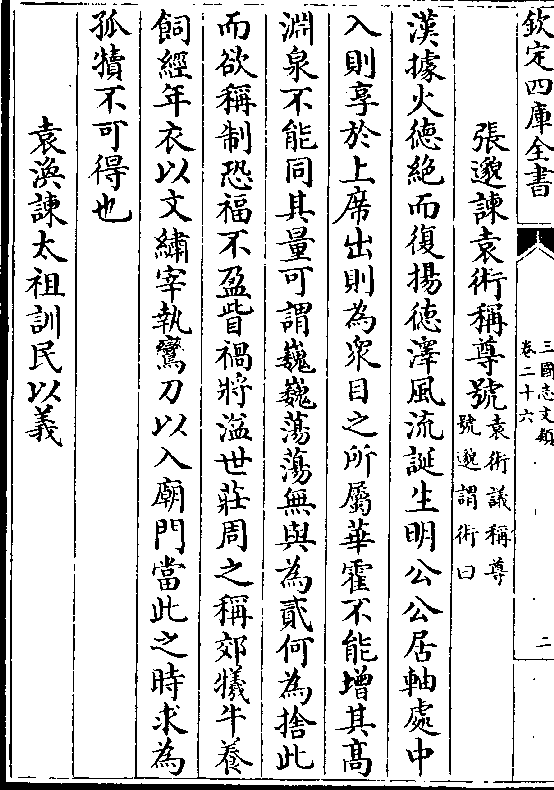 欽定四庫全書
三國志文類
卷二十六
二
張邈諫袁術稱尊號
袁術議稱尊
號邈謂術曰
漢據火德絶而復揚德澤風流誕生明公公居軸處中
入則享於上席出則為衆目之所屬華霍不能增其髙
淵泉不能同其量可謂巍巍蕩蕩無與為貳何為捨此
而欲稱制恐福不盈眥禍將溢世莊周之稱郊犧牛養
飼經年衣以文繡宰執鸞刀以入廟門當此之時求為
孤犢不可得也
袁渙諫太祖訓民以義